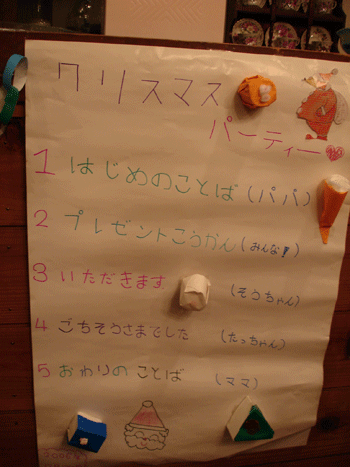 クリスマス
パーティー
1 はじめのことば (パパ)
2 プレゼントこうかん (みんな!)
3 いただきます (そうちゃん)
4 ごちそうさまでした (たっちゃん)
5 おわりのことば (ママ)